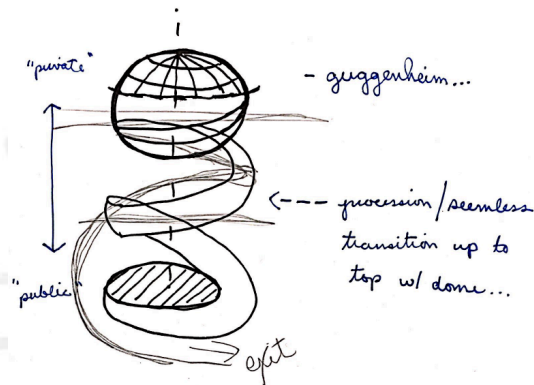 "private"
- guggenheim...
<--- procession/seemless
transition up to
top w/ dome...
"public"
exit